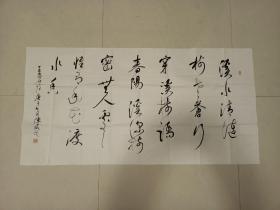 溪水清涟
树老苍行
穿溪树踏
春阳溪深树
密无人处
惟有幽花渡
水香